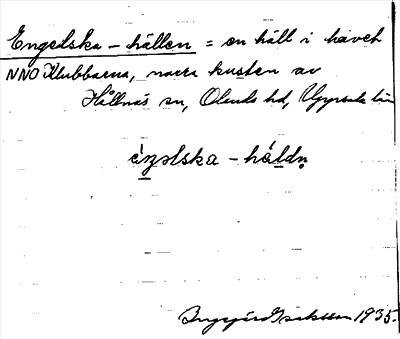 Engelska – hällen = en häll i havet
NNO Klubbarna, norra kusten av
Hållnäs sn, Olands hd, Uppsala län
éŋəlska – häldn̥
1935.